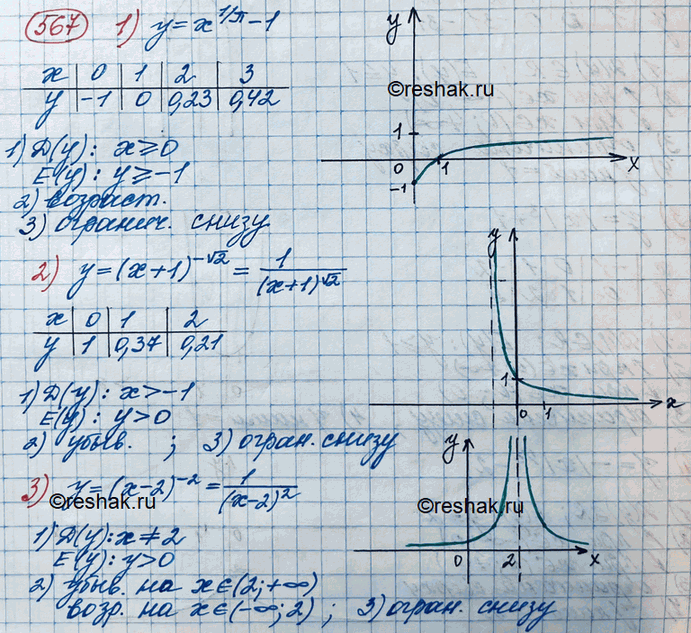 567 1) y = x^(1/π) - 1
x | 0 | 1 | 2 | 3
y | -1 | 0 | 0,23 | 0,42
1) D(y): x ≥ 0
E(y): y ≥ -1
2) возраст.
3) огранич. снизу
y
©reshak.ru
1
0
1
x
-1
2) y = (x+1)^(-√2) = 1/(x+1)^√2
x | 0 | 1 | 2
y | 1 | 0,37 | 0,21
1) D(y): x > -1
E(y): y > 0
2) убыв. ; 3) огран. снизу
y
1
0
1
x
3) y = (x-2)^(-2) = 1/(x-2)^2
©reshak.ru
1) D(y): x ≠ 2
E(y): y > 0
2) убыв. на x∈(2;+∞)
возр. на x∈(-∞;2) ; 3) огран. снизу
y
©reshak.ru
0
2
x